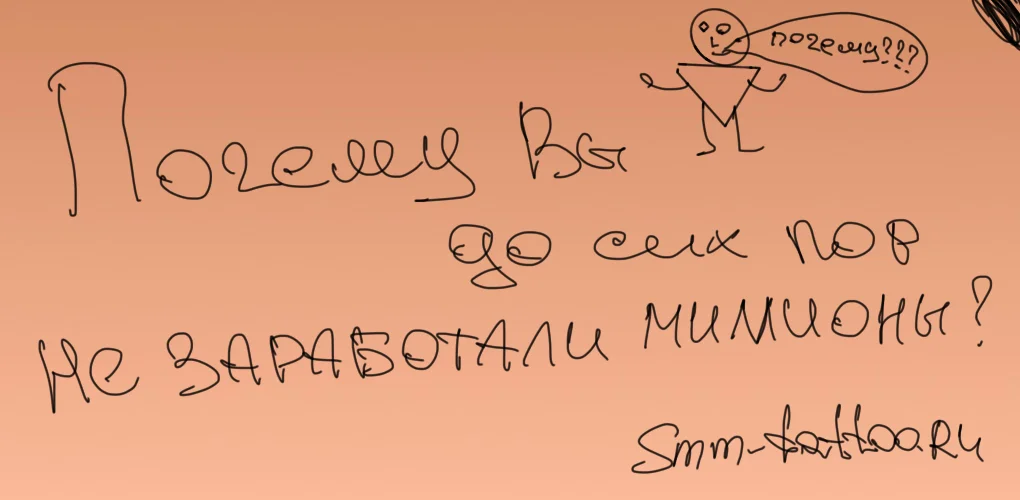 почему???
Почему Вы
до сих пор
НЕ ЗАРАБОТАЛИ МИЛЛИОНЫ?
smm-tattoo.RU